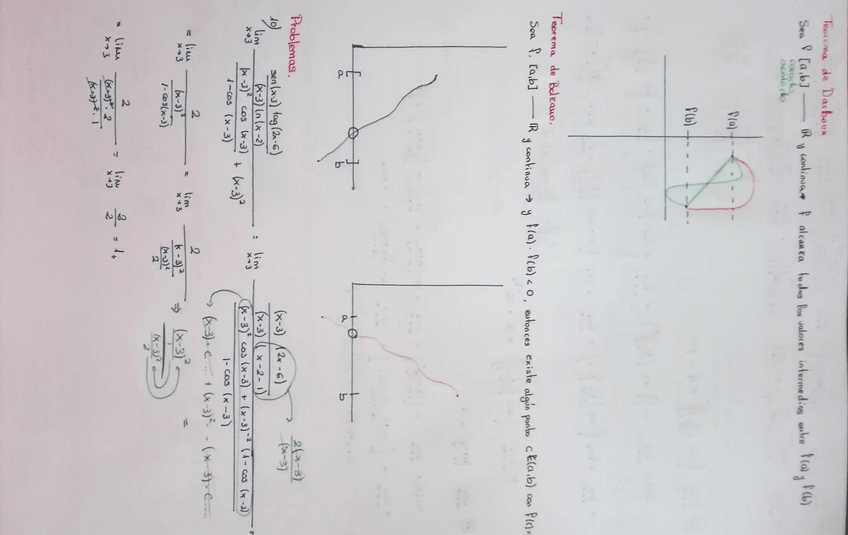 Teorema de Darboux
Sea f [a,b] — ℝ y continua → f alcanza todos los valores intermedios entre f(a) y f(b)
cerrado
acotado
f(a)
f(b)
Teorema de Bolzano.
Sea f. [a,b] — ℝ y continua → y f(a) · f(b) < 0, entonces existe algún punto c∈(a,b) con f(c)=
a
b
a
b
Problemas.
10) lim x→3 (sen(x-3) log(2x-6) / (x-3) ln(x-2)) / ((x-3)² cos (x-3) / 1-cos (x-3) + (x-3)²) = lim x→3 ((x-3) (2x-6) / (x-3) (x-2-1)) / ((x-3)² cos (x-3) + (x-3)² (1-cos (x-3)) / 1-cos (x-3)) =
2(x-3) / (x-3)
(x-3) · c.... + (x-3)² - (x-3) · c....
= lim x→3 2 / ((x-3)² / 1-cos(x-3)) = lim x→3 2 / ((x-3)² / ((x-3)² / 2)) ⇒ (x-3)² / ((x-3)² / 2) =
= lim x→3 2 / ((x-3)² · 2 / (x-3)² · 1) = lim x→3 2/2 = 1,